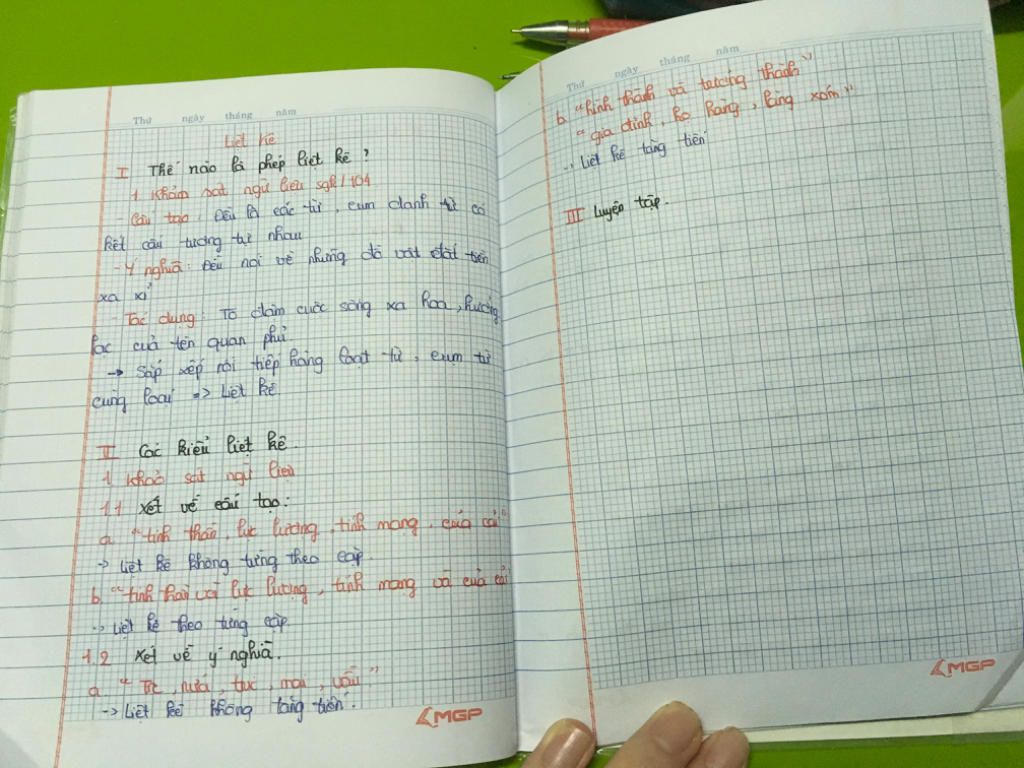 Thứ ngày tháng năm
Liệt kê
I Thế nào là phép liệt kê ?
1 Khảo sát ngữ liệu sgk/104
- Cấu tạo : Đều là các từ , cụm danh từ có
kết cấu tương tự nhau
- Ý nghĩa : Đều nói về những đồ vật đắt tiền
xa xỉ
- Tác dụng : Tô đậm cuộc sống xa hoa , hưởng
lạc của tên quan phủ
→ Sắp xếp nối tiếp hàng loạt từ , cụm từ
cùng loại => Liệt kê.
II Các kiểu liệt kê.
1 Khảo sát ngữ liệu
1.1 Xét về cấu tạo :
a. "tinh thần , lực lượng , tính mạng , của cải"
→ Liệt kê không từng theo cặp.
b. "tinh thần và lực lượng , tính mạng và của cải
→ Liệt kê theo từng cặp
1.2 Xét về ý nghĩa.
a. " Tre , nứa , trúc , mai , vầu "
→ Liệt kê không tăng tiến .
MGP
Thứ ngày tháng năm
b. "hình thành và trưởng thành"
" gia đình , họ hàng , làng xóm "
→ Liệt kê tăng tiến
III Luyện tập .
MGP